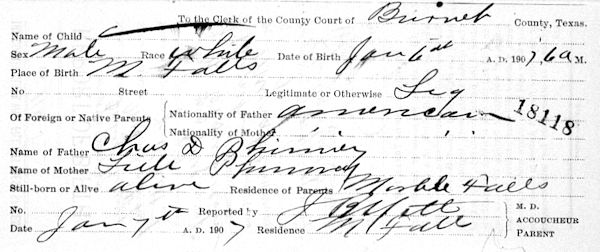 To the Clerk of the County Court of Burnet County, Texas.
Name of Child
Sex Male Race White Date of Birth Jan 6th A. D. 1907, 6 a M.
Place of Birth M Falls
No Street Legitimate or Otherwise Leg
Of Foreign or Native Parents Nationality of Father American
Nationality of Mother " "
18118
Name of Father Chas D Phinney
Name of Mother Phinney
Still-born or Alive alive Residence of Parents Marble Falls
No. Reported by
Date Jan 7th A. D. 1907 Residence M Fall
M. D.
ACCOUCHEUR
PARENT